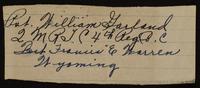 Pvt. William Garland
2 M P S C 4th Reg B. C
Fort Francis E Warren
Wyoming